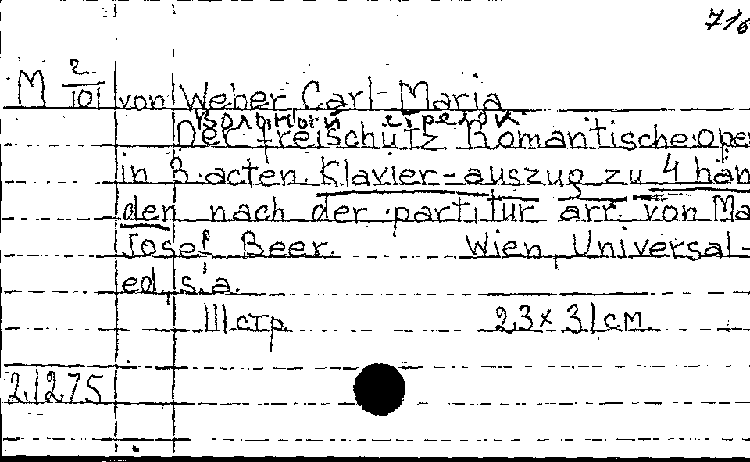 716
M 2/101 von Weber, Carl-Maria
Der freischütz Romantische oper
in 3 acten. Klavier-auszug zu 4 hän
den nach der partitur arr. von Ma
Josef Beer. Wien, Universal-
ed, s.a.
111 стр. 23 x 31 см.
21275